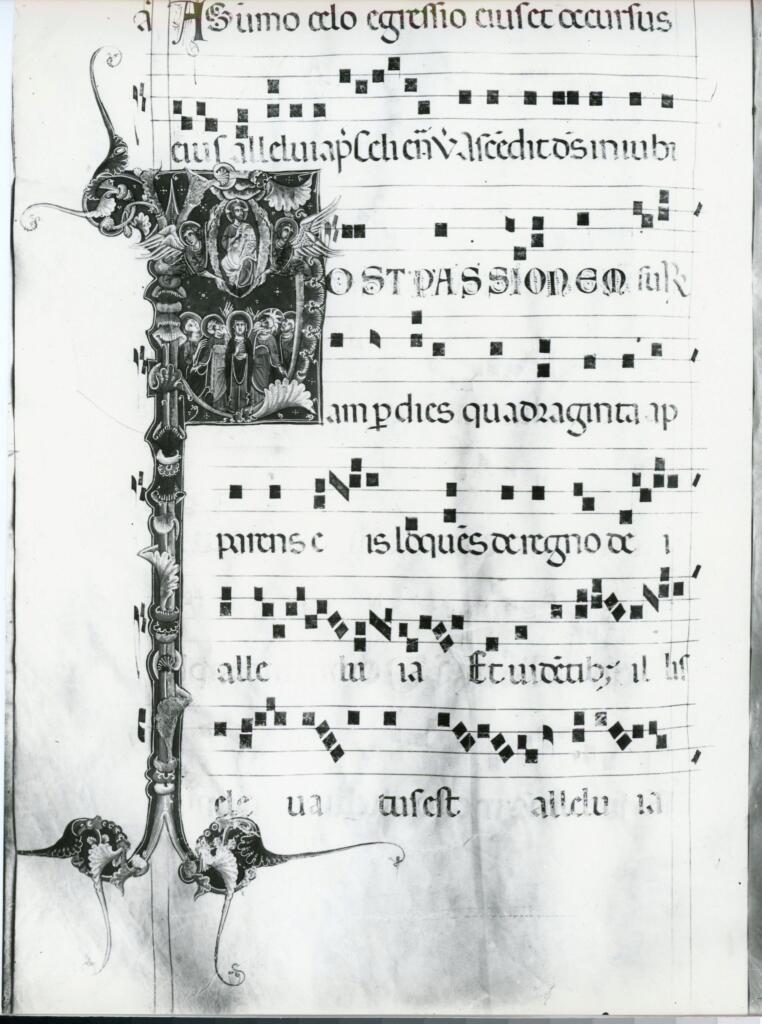 a A Sumo celo egressio eius et occursus
eius alleluia ps̉ Celi enN̄ V̉ Ascēdit dS̄ in iubi
POST PASSIONEM SUR
am ꝑ dies quadraginta ap
parens e is loquēs de regno de i
alle lu ia Et uidētibꝫ il lis
ele ua tus est allelu ia